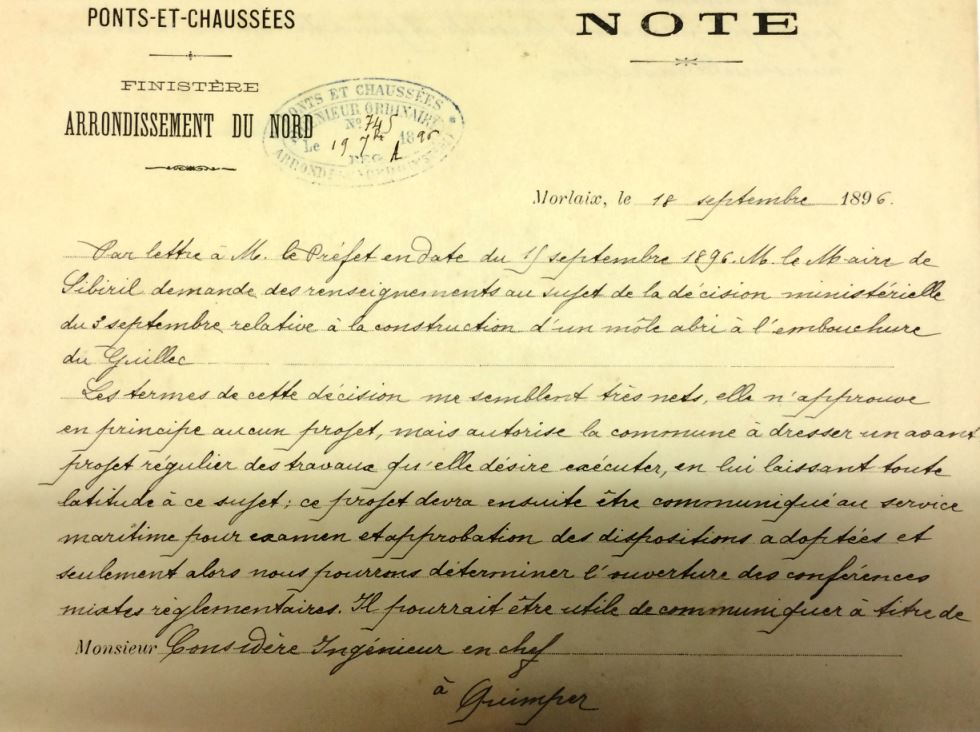 PONTS-ET-CHAUSSÉES
NOTE
FINISTÈRE
ARRONDISSEMENT DU NORD
PONTS ET CHAUSSÉES
INGÉNIEUR ORDINAIRE
N° 745
Le 19 7bre 1896
REG. A
Morlaix, le 18 septembre 1896.
Par lettre à M. le Préfet en date du 15 septembre 1896. M. le Maire de
Sibiril demande des renseignements au sujet de la décision ministérielle
du 3 septembre relative à la construction d'un môle abri à l'embouchure
du Guillec
Les termes de cette décision me semblent très nets, elle n'approuve
en principe aucun projet, mais autorise la commune à dresser un avant
projet régulier des travaux qu'elle désire exécuter, en lui laissant toute
latitude à ce sujet; ce projet devra ensuite être communiqué au service
maritime pour examen et approbation des dispositions adoptées et
seulement alors nous pourrons déterminer l'ouverture des conférences
mixtes réglementaires. Il pourrait être utile de communiquer à titre de
Monsieur Considère Ingénieur en chef
à Quimper